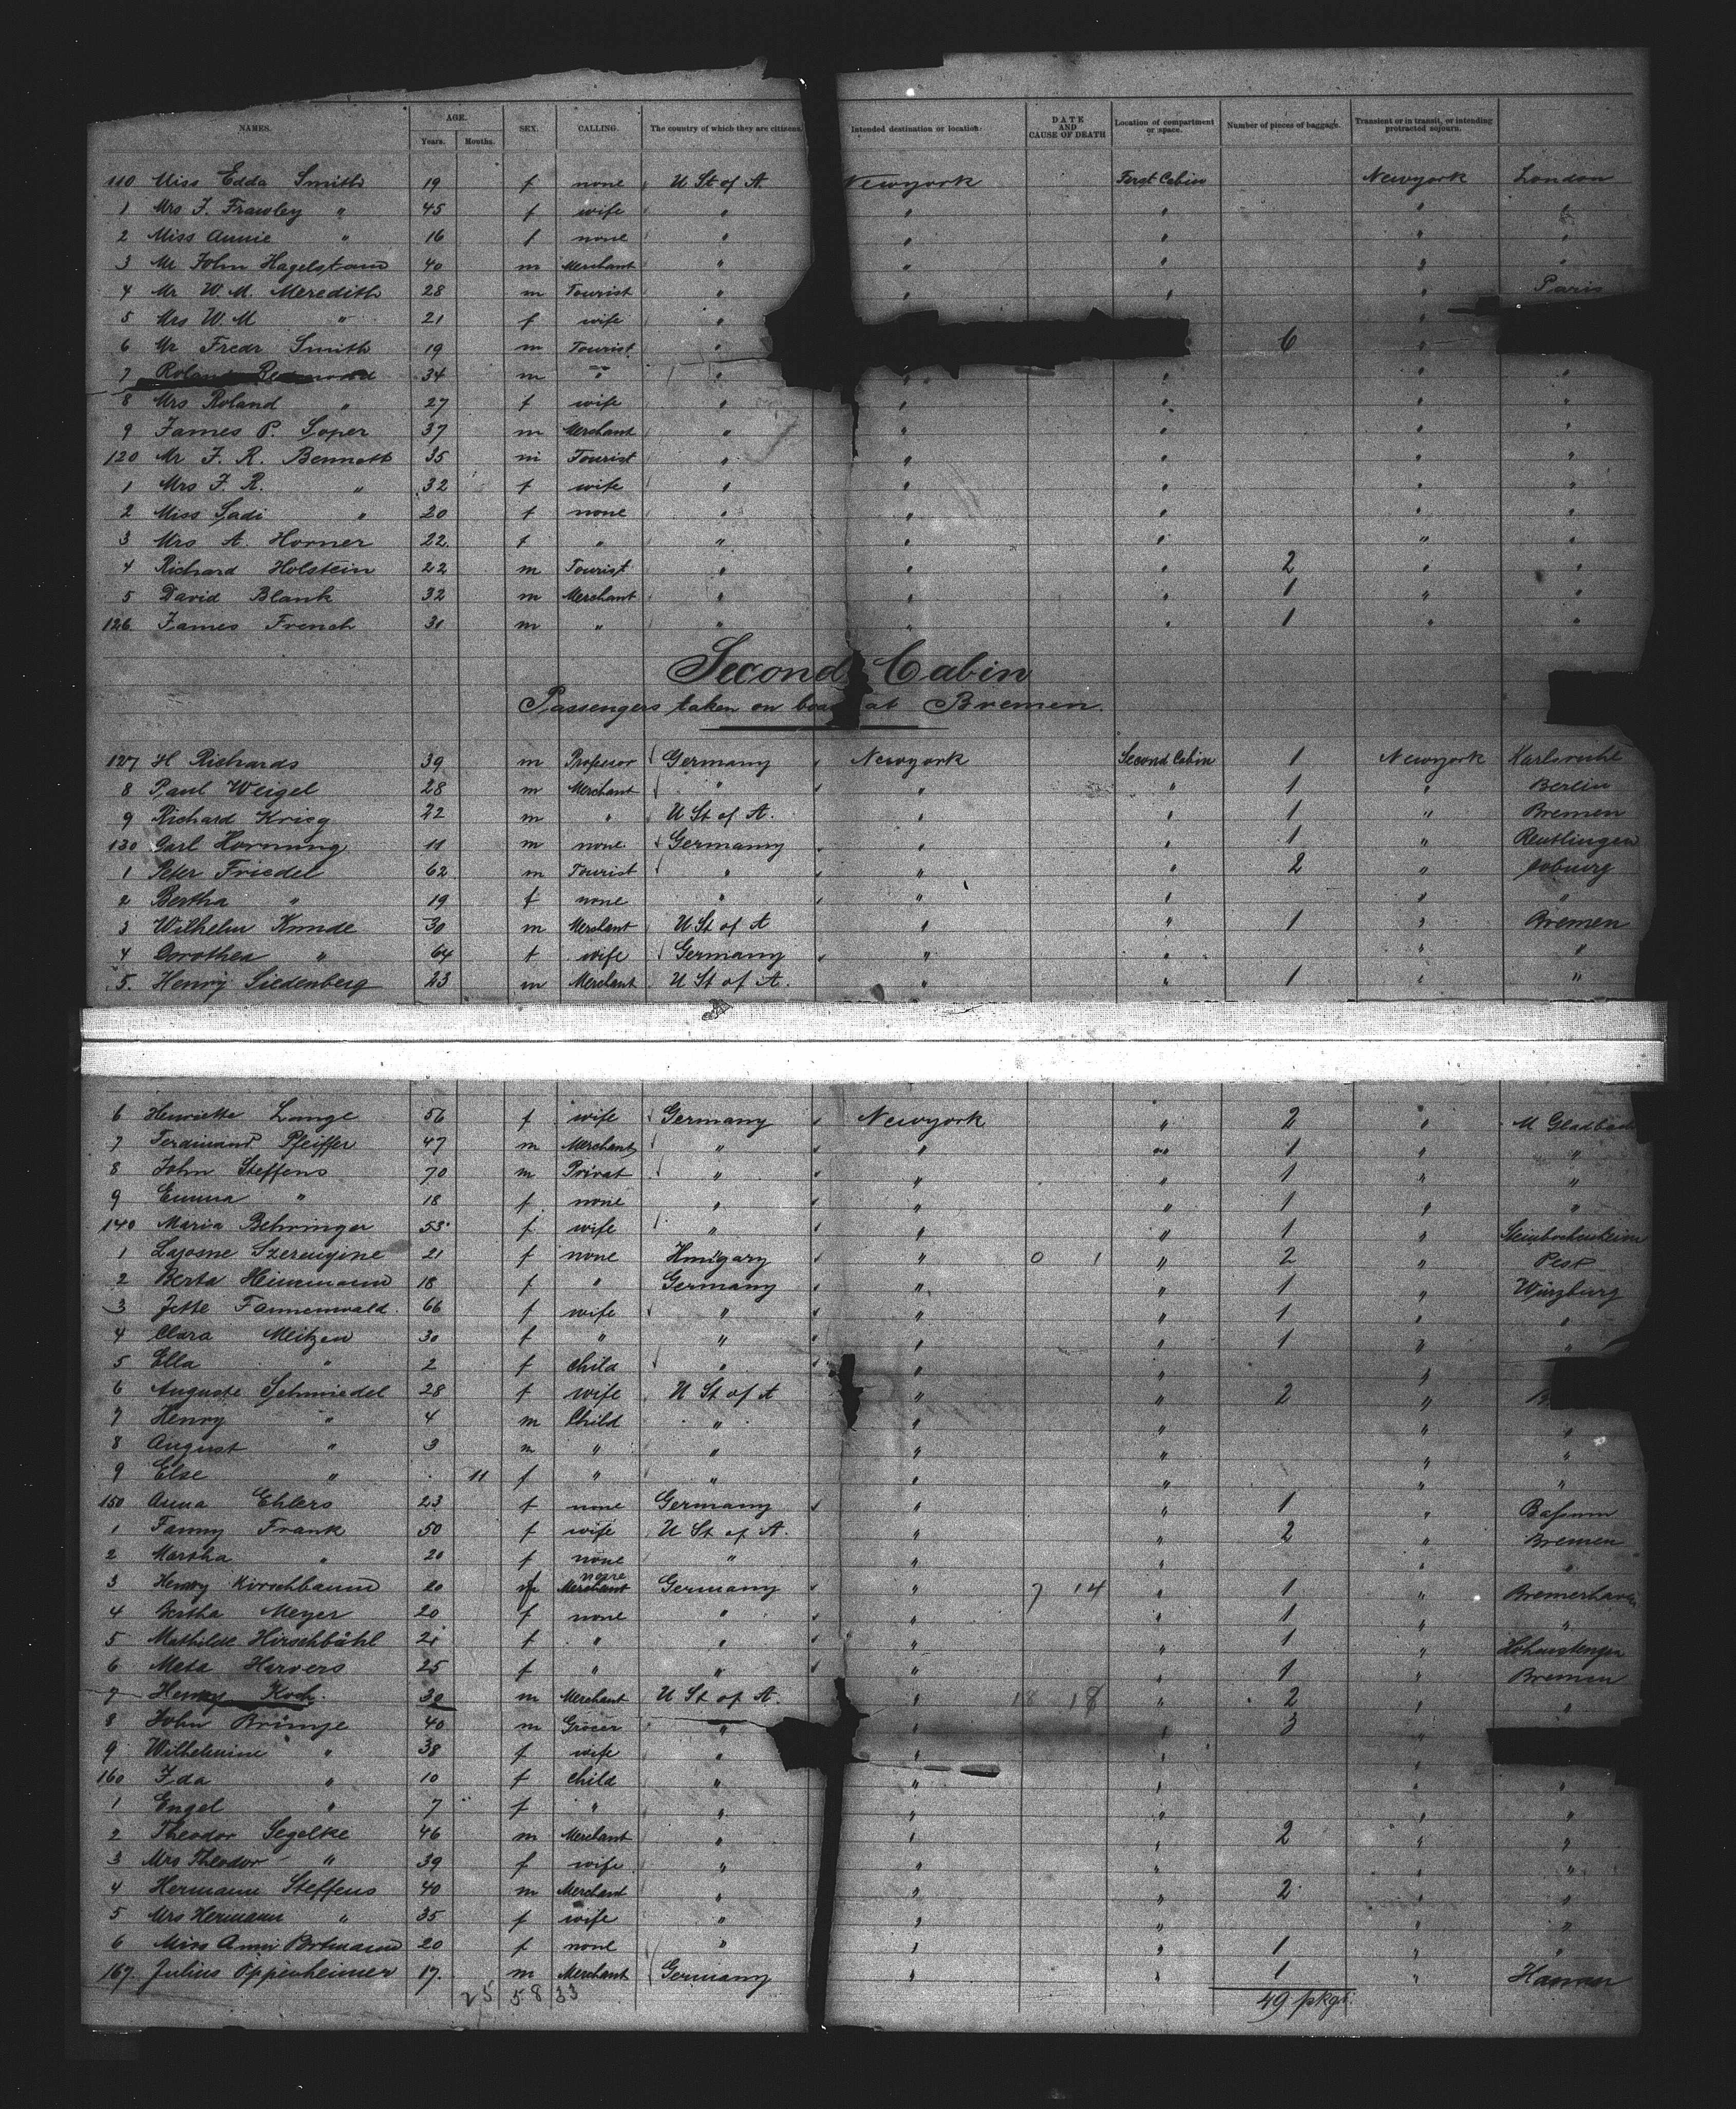 NAMES. AGE. Years. Months. SEX. CALLING. The country of which they are citizens. Intended destination or location. DATE AND CAUSE OF DEATH Location of compartment or space. Number of pieces of baggage. Transient or in transit, or intending protracted sojourn.
110 Miss Edda Smith 19 f none U St of A. Newyork First Cabin Newyork London
1 Mrs F. Frawley " 45 f wife " " " " "
2 Miss Annie " 16 f none " " " " "
3 Mr John Hagelstam 40 m Merchant " " " " "
4 Mr W. M. Meredith 28 m Tourist " " " " Paris
5 Mrs W. M " 21 f wife " "
6 Mr Fredr Smith 19 m Tourist " 6 "
7 Roland 34 m " " " " " "
8 Mrs Roland " 27 f wife " " " " "
9 James P. Soper 37 m Merchant " " " " "
120 Mr F. R. Bennett 35 m Tourist " " " " "
1 Mrs F. R. " 32 f wife " " " " "
2 Miss Sadi " 20 f none " " " " "
3 Mrs A. Horner 22. f " " " " " "
4 Richard Holstein 22 m Tourist " " " 2 " "
5 David Blank 32 m Merchant " " " 1 " "
126. James French 31 m " " " " 1 " "
Second Cabin
Passengers taken on board at Bremen.
127 H Richards 39 m Professor Germany Newyork Second Cabin 1 Newyork Karlsruhe
8 Paul Weigel 28 m Merchant " " " 1 " Berlin
9 Richard Krieg 22 m " U St of A. " " 1 " Bremen
130 Carl Hornung 11 m none Germany " " 1 " Reutlingen
1 Peter Friedel 62 m Tourist " " " 2 " Coburg
2 Bertha " 19 f none " " " " "
3 Wilhelm Kunde 30 m Merchant U St of A " " 1 " Bremen
4 Dorothea " 64 f wife Germany " " " "
5. Henry Siedenberg 23 m Merchant U St of A. " " 1 " "
6 Henriette Lange 56 f wife Germany Newyork " 2 " M Gladbach
7 Ferdinand Pfeiffer 47 m Merchant " " " 1 " "
8 John Steffens 70 m Privat " " " 1 " "
9 Emma " 18 f none " " " 1 " "
140 Maria Behringer 53 f wife " " " 1 "
1 21 f none Hungary " 0 1 " 2 " Pest
2 Berta Heinemann 18 f " Germany " " 1 " Würzburg
3 Jette Tannenwald 66 f wife " " " 1 " "
4 Clara Meitzen 30 f " " " " 1 " "
5 Ella " 2 f child " " " "
6 Auguste Schmiedel 28 f wife U St of A " " 2 "
7 Henry " 4 m Child " " " " "
8 August " 3 m " " " " " "
9 Else " 11 f " " " " " "
150 Anna Ehlers 23 f none Germany " " 1 " Bassum
1 Fanny Frank 50 f wife U St of A. " " 2 " Bremen
2 Martha " 20 f none " " " " "
3 Henny Kirschbaum 20 f none Merchant Germany " 7 14 " 1 " Bremerhaven
4 Bertha Meyer 20 f none " " " 1 " "
5 Mathilde Hirschbühl 21 f " " " " 1 "
6 Meta Harvers 25 f " " " " 1 " Bremen
7 Henry Koch. 30 m Merchant U St of A. " 18 18 " 2 " "
8 John Brimje 40 m Grocer " " " 3 "
9 Wilhelmine " 38 f wife " " " "
160 Ida " 10 f child " " " " "
1 Engel " 7 f " " " " " "
2 Theodor Segelke 46 m Merchant " " " 2 " "
3 Mrs Theodor " 39 f wife " " " " "
4 Hermann Steffens 40 m Merchant " " " 2 " "
5 Mrs Hermann " 35 f wife " " " " "
6 Miss Anni Portmann 20 f none " " " 1 " "
167. Julius Oppenheimer 17. m Merchant Germany " " 1 "
25 58 33 49 pkgs.